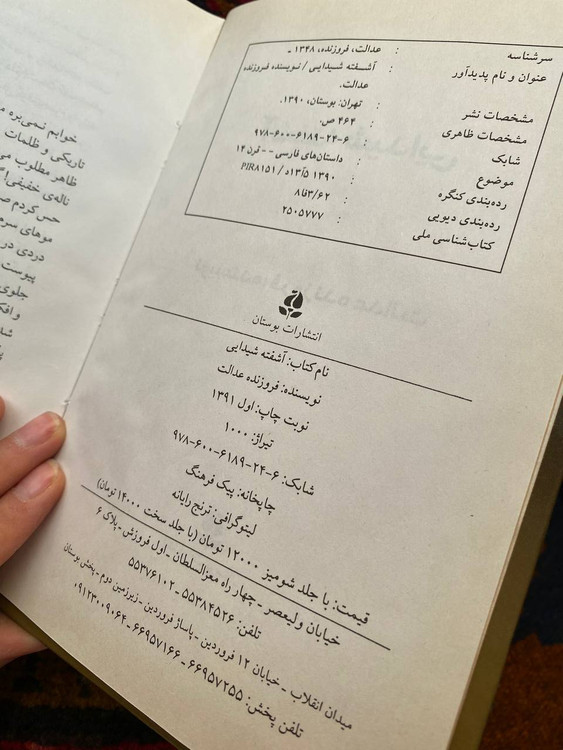 سرشناسه : عدالت، فروزنده، ۱۳۴۸ ـ
عنوان و نام پدیدآور : آشفته شیدایی / نویسنده فروزنده
عدالت.
مشخصات نشر : تهران: بوستان، ۱۳۹۰.
مشخصات ظاهری : ۴۶۴ ص.
شابک : ۹۷۸-۶۰۰-۶۱۸۹-۲۴-۶
موضوع : داستان‌های فارسی -- قرن ۱۴
رده‌بندی کنگره : ۱۳۹۰ ۵آ۱۳د / PIR۸۱۵۱
رده‌بندی دیویی : ۸فا۳/۶۲
کتاب‌شناسی ملی : ۲۵۰۵۷۷۷
انتشارات بوستان
نام کتاب: آشفته شیدایی
نویسنده: فروزنده عدالت
نوبت چاپ: اول ۱۳۹۱
تیراژ: ۱۰۰۰
شابک: ۶-۲۴-۶۱۸۹-۶۰۰-۹۷۸
چاپخانه: پیک فرهنگ
لیتوگرافی: ترنج رایانه
قیمت: با جلد شومیز ۱۲۰۰۰ تومان (با جلد سخت ۱۴۰۰۰ تومان)
خیابان ولیعصر ـ چهار راه معزالسلطان ـ اول فروزش ـ پلاک ۶
تلفن: ۵۵۳۸۴۵۲۶ ـ ۵۵۳۷۶۱۰۲
میدان انقلاب ـ خیابان ۱۲ فروردین ـ پاساژ فروردین ـ زیرزمین دوم ـ پخش بوستان
تلفن پخش: ۶۶۹۵۷۲۵۵ ـ ۶۶۹۵۷۱۶۶ ـ ۰۹۱۲۳۰۰۹۰۶۴
خوابم نمی‌بره
تاریکی و ظلمات
ظاهر مطلوب
ناله‌ی خفیفی
حس کردم
موهای
دردی در
پیوست
جلوی